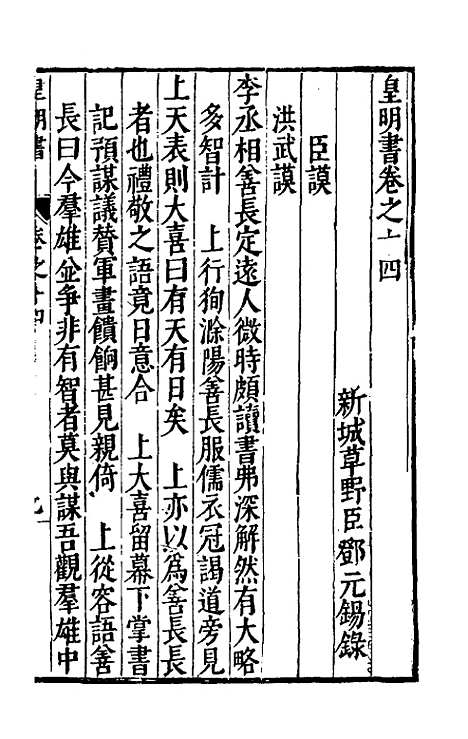 皇明書卷之十四
新城草野臣鄧元錫錄
臣謨
洪武謨
李丞相善長定遠人微時頗讀書弗深解然有大略
多智計　上行狥滁陽善長服儒衣冠謁道旁見
上天表則大喜曰有天有日矣　上亦以為善長長
者也禮敬之語竟日意合　上大喜留幕下掌書
記預謀議贊軍畫饋餉甚見親倚　上從容語善
長曰今羣雄並爭非有智者莫與謀吾觀羣雄中
皇明書
卷之十四